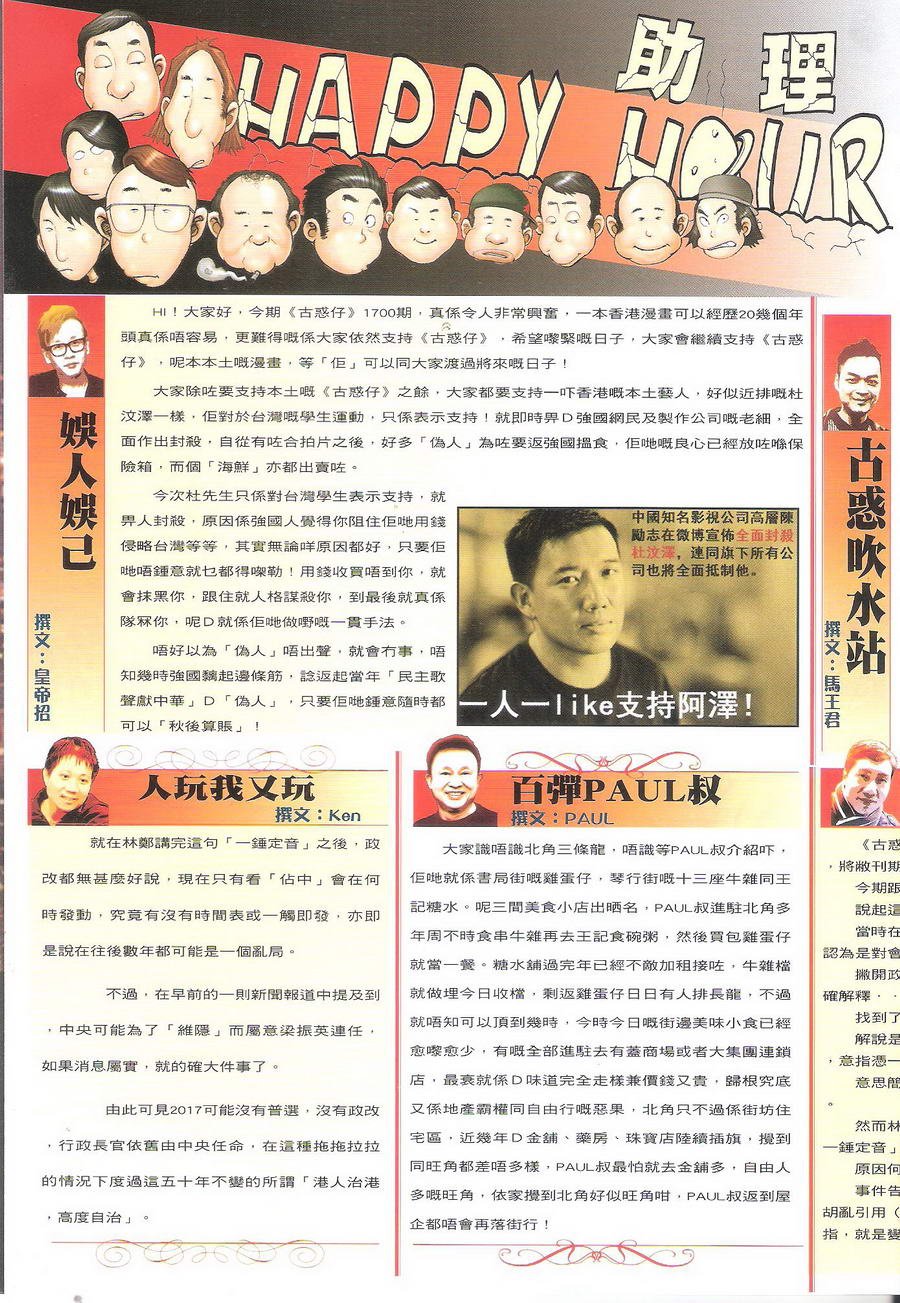 HAPPY
助理
HOUR
娛人娛己
撰文：皇帝招
HI！大家好，今期《古惑仔》1700期，真係令人非常興奮，一本香港漫畫可以經歷20幾個年
頭真係唔容易，更難得嘅係大家依然支持《古惑仔》，希望嚟緊嘅日子，大家會繼續支持《古惑
仔》，呢本本土嘅漫畫，等「佢」可以同大家渡過將來嘅日子！
大家除咗要支持本土嘅《古惑仔》之餘，大家都要支持一吓香港嘅本土藝人，好似近排嘅杜
汶澤一樣，佢對於台灣嘅學生運動，只係表示支持！就即時畀D強國網民及製作公司嘅老細，全
面作出封殺，自從有咗合拍片之後，好多「偽人」為咗要返強國搵食，佢哋嘅良心已經放咗喺保
險箱，而個「海鮮」亦都出賣咗。
今次杜先生只係對台灣學生表示支持，就
畀人封殺，原因係強國人覺得你阻住佢哋用錢
侵略台灣等等，其實無論咩原因都好，只要佢
哋唔鍾意就乜都得㗎勒！用錢收買唔到你，就
會抹黑你，跟住就人格謀殺你，到最後就真係
隊冧你，呢D就係佢哋做嘢嘅一貫手法。
唔好以為「偽人」唔出聲，就會冇事，唔
知幾時強國黐起邊條筋，諗返起當年「民主歌
聲獻中華」D「偽人」，只要佢哋鍾意隨時都
可以「秋後算賬」！
中國知名影視公司高層陳
勵志在微博宣佈全面封殺
杜汶澤，連同旗下所有公
司也將全面抵制他。
一人一like支持阿澤！
古惑吹水站
撰文：馬王君
人玩我又玩
撰文：Ken
就在林鄭講完這句「一錘定音」之後，政
改都無甚麼好說，現在只有看「佔中」會在何
時發動，究竟有沒有時間表或一觸即發，亦即
是說在往後數年都可能是一個亂局。
不過，在早前的一則新聞報道中提及到
，中央可能為了「維隱」而屬意梁振英連任，
如果消息屬實，就的確大件事了。
由此可見2017可能沒有普選，沒有政改
，行政長官依舊由中央任命，在這種拖拖拉拉
的情況下度過這五十年不變的所謂「港人治港
，高度自治」。
百彈PAUL叔
撰文：PAUL
大家識唔識北角三條龍，唔識等PAUL叔介紹吓，
佢哋就係書局街嘅雞蛋仔，琴行街嘅十三座牛雜同王
記糖水。呢三間美食小店出晒名，PAUL叔進駐北角多
年周不時食串牛雜再去王記食碗粥，然後買包雞蛋仔
就當一餐。糖水舖過完年已經不敵加租接咗，牛雜檔
就做埋今日收檔，剩返雞蛋仔日日有人排長龍，不過
就唔知可以頂到幾時，今時今日嘅街邊美味小食已經
愈嚟愈少，有嘅全部進駐去有蓋商場或者大集團連鎖
店，最衰就係D味道完全走樣兼價錢又貴，歸根究底
又係地產霸權同自由行嘅惡果，北角只不過係街坊住
宅區，近幾年D金舖、藥房、珠寶店陸續插旗，攪到
同旺角都差唔多樣，PAUL叔最怕就去金舖多，自由人
多嘅旺角，依家攪到北角好似旺角咁，PAUL叔返到屋
企都唔會再落街行！
《古惑
，將敝刊期
今期跟
說起這
當時在
認為是對會
撇開政
確解釋．．
找到了
解說是
，意指憑一
意思簡
。
然而林
一錘定音」
原因何
事件告
胡亂引用（
指，就是變